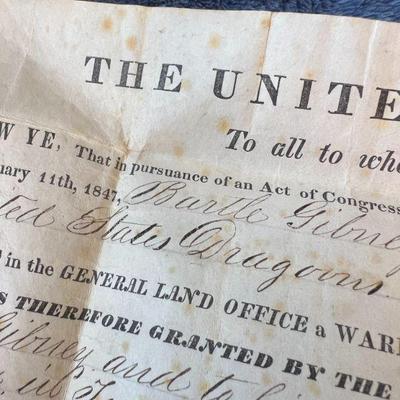 THE UNITE
To all to who
W YE, That in pursuance of an Act of Congress
uary 11th, 1847, Bartle Gibney
ted States Dragoons
in the GENERAL LAND OFFICE a WARR
S THEREFORE GRANTED BY THE
Gibney and to